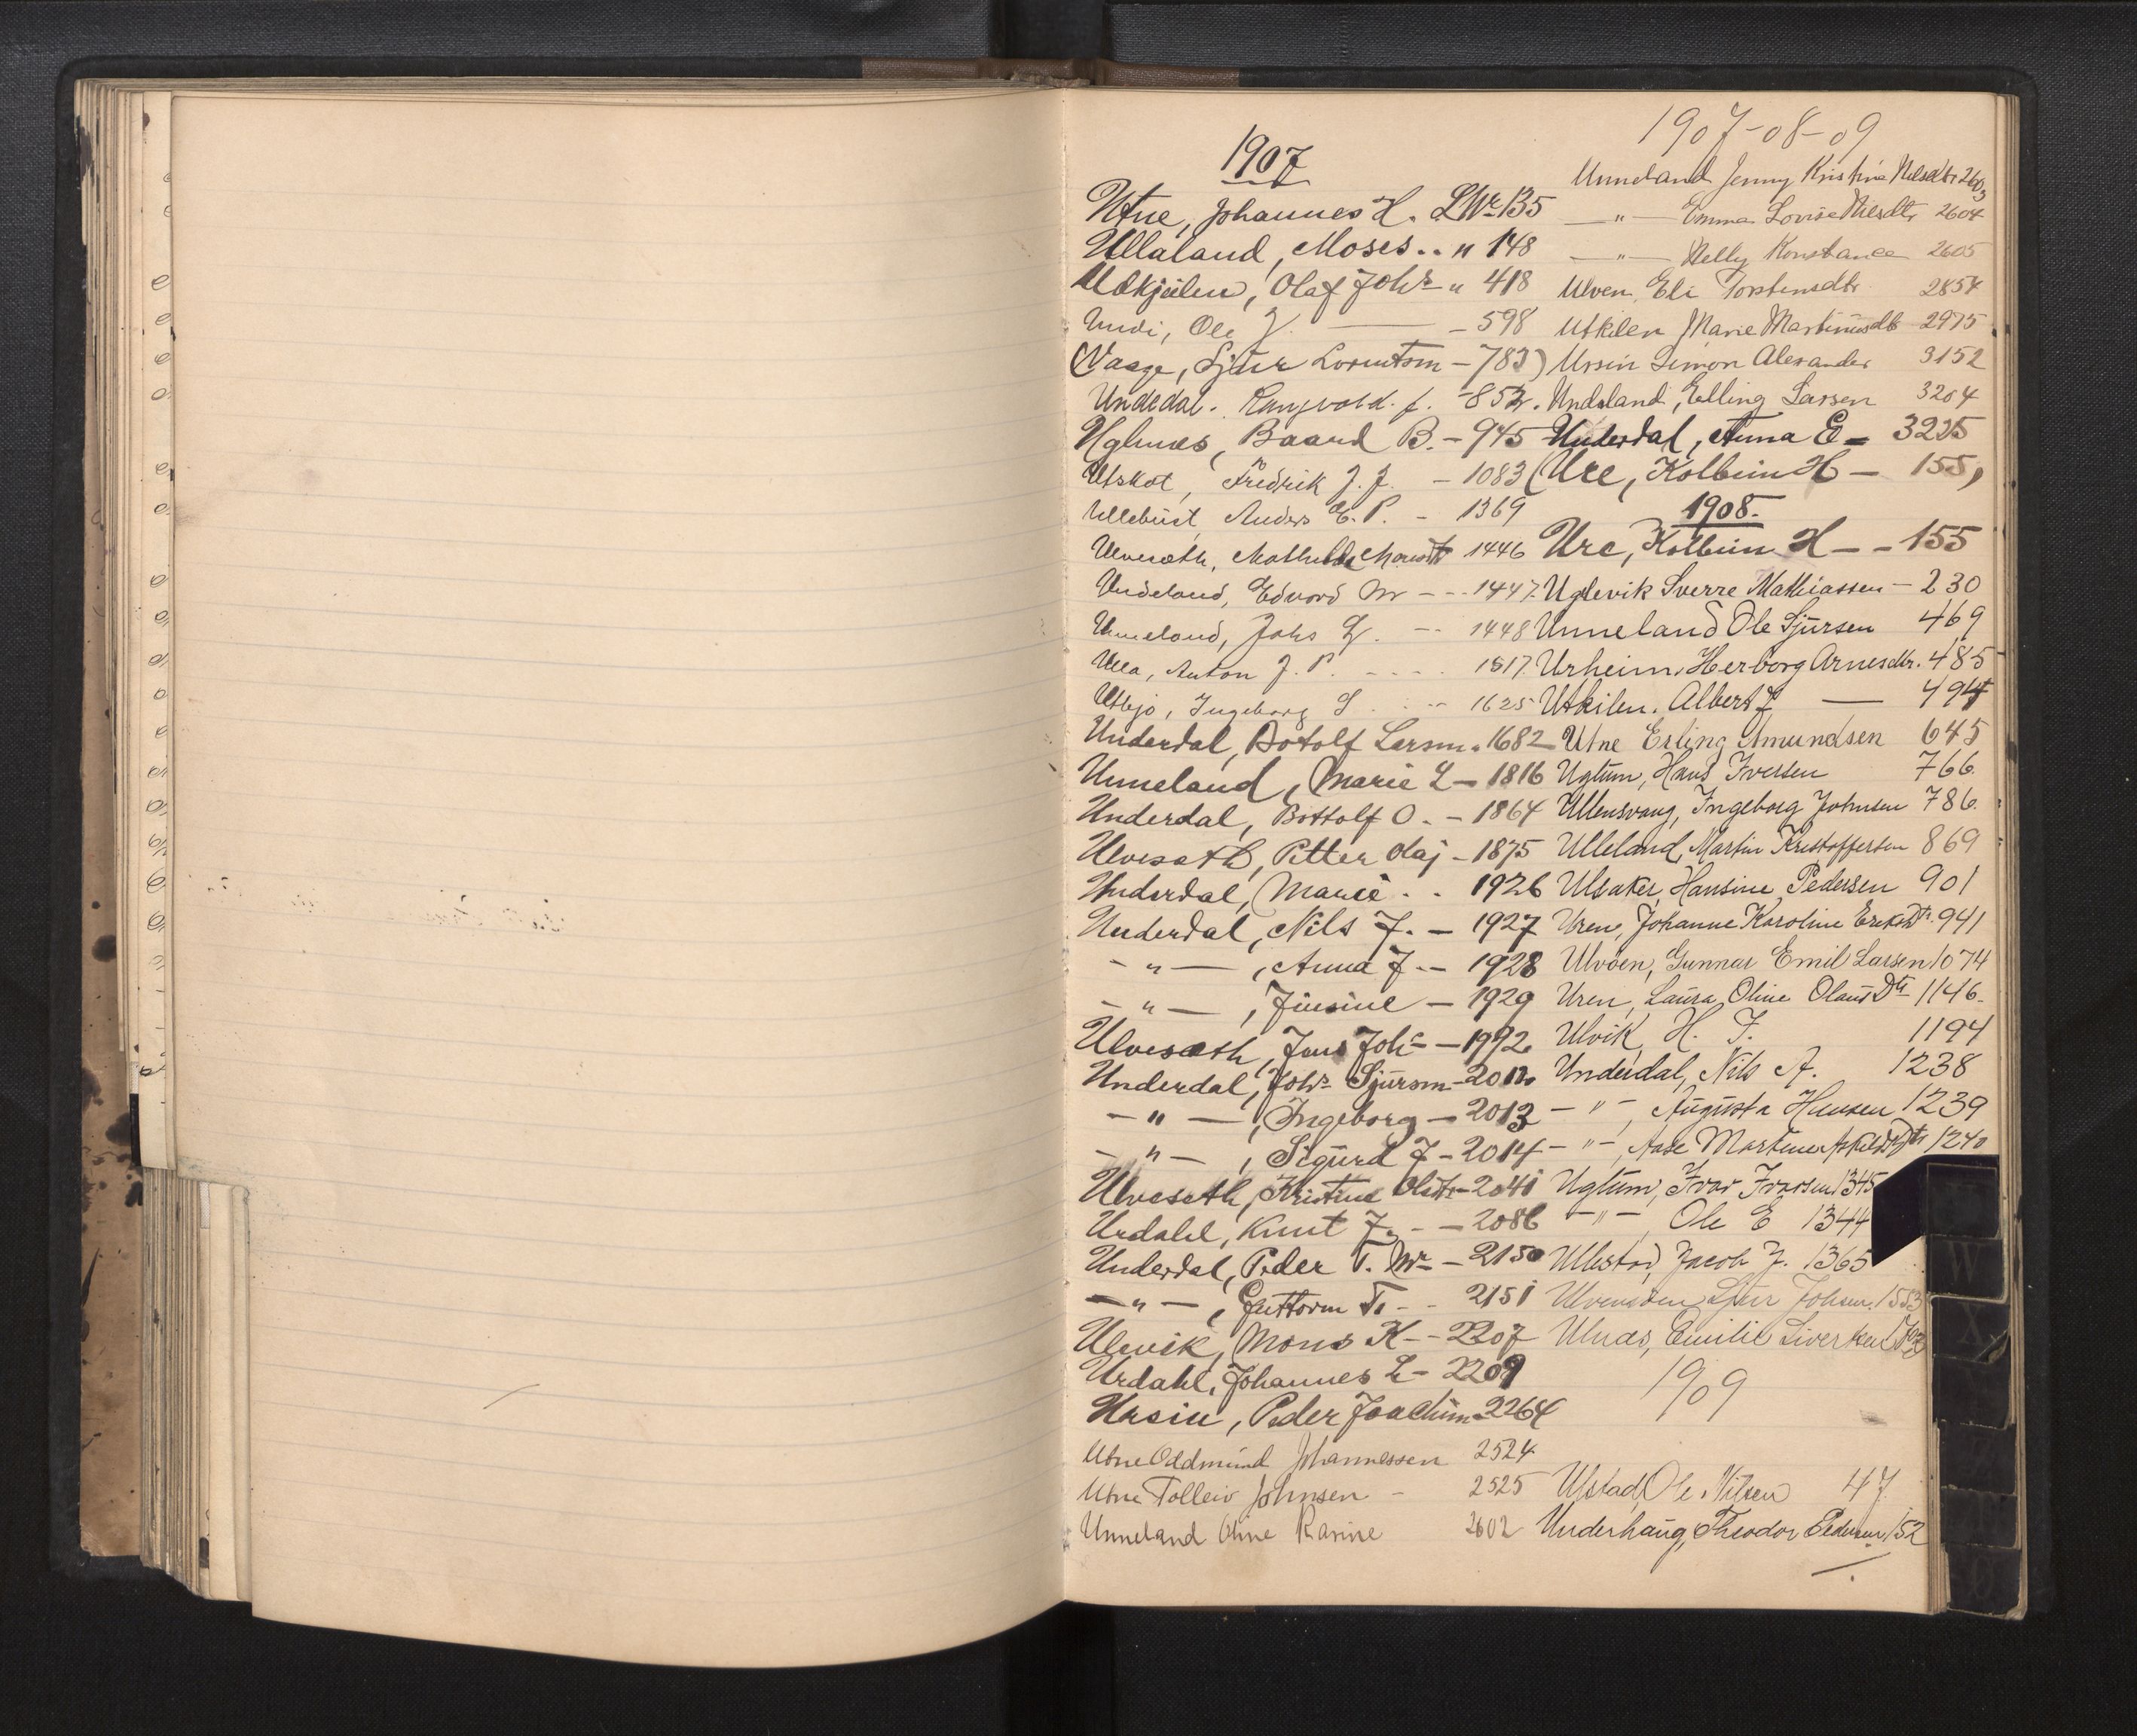 1907
Utne, Johannes H. LNr 135
Ullaland, Moses .. " 148
Utkjilen, Olaf Johs - " 418
Undi, Ole J. — - 598
(Vaage, Sjur Lorntsen - 783)
Undedal. Rangvald. J. - 852.
Uglnæs, Baard B. - 945
Utskot, Fredrik J. J. - 1083
Ullebust, Anders E. P. - 1369
Ulveseth, Mathilde 1446
Undeland, Edvard M - - - 1447.
Unneland, Johs L. - - 1448
Ulla, Anton J. P. - - - - 1517.
Utbjo, Ingeborg S . . - - 1625
Underdal, Botolf Larsen. 1682
Unneland, Marie L - 1816
Underdal, Bottolf O. - 1864
Ulveseth, Petter Olaj - 1875
Underdal, Marie . . 1926
Underdal, Nils J. - 1927
- " - , Anna J. - 1928
- " - , Jinsine - 1929
Ulveseth, Jens Joh - 1992.
Underdal, Johs Sjursen - 2012.
- " - , Ingeborg - 2013
- " - , Sigurd J - 2014
Ulveseth, Kristine Olsdtr - 2041
Urdahl, Knut J. - - 2086
Underdal, Peder T. - 2150
- " - , Guttorm T. - - 2151
Ulevik, Mons K - - 2207
Urdahl, Johannes L - 2209
Ursin, Peder Joachim - 2264
Utne Oddmund Johannessen 2524
Utne Tolleiv Johnsen - 2525
Unneland Oline Karine 2602
1907-08-09
Unneland Jenny Kristine Nilsdtr 2603
— " — Emma Lovise Nilsdtr 2604
— " — Nelly Konstance 2605
Ulven, Eli Torstensdtr 2854
Utkilen Marie Martinusdtr 2975
Ursin Simon Alexander 3152
Undeland, Elling Larsen 3204
Underdal, Anna E - 3225
(Ure, Kolbein H - 155)
1908.
Ure, Kolbein H - - 155
Uglevik Sverre Mathiassen - 230
Unneland Ole Sjursen 469
Urheim, Herborg Arnesdtr. 485
Utkilen. Albert J — 494
Utne Erling Amundsen 645
Ugtum, Hans Iversen 766.
Ullensvang, Ingeborg Johnsen 786.
Ulleland, Martin Kristoffersen 869
Ulsaker, Hansine Pedersen 901
Uren, Johanne Karoline EriksDtr. 941
Ulvøen, Gunnar Emil Larsen 1074
Uren, Laura Oline Olaus Dtr 1146.
Ulvik, H. J. 1194
Underdal, Nils A. 1238
- " - , Augusta Hansen 1239
- " - , Aase Martine Dtr 1240
Ugtum, Ivar Ivarsen 1345
- " - , Ole E 1344
Ullestad, Jacob J. 1365
Sjur Johsen. 1553
Ulnæs, Emilie
1909
Ulstad, Ole Nilsen 47
Underhaug, Theodor Pedersen 152
W
X